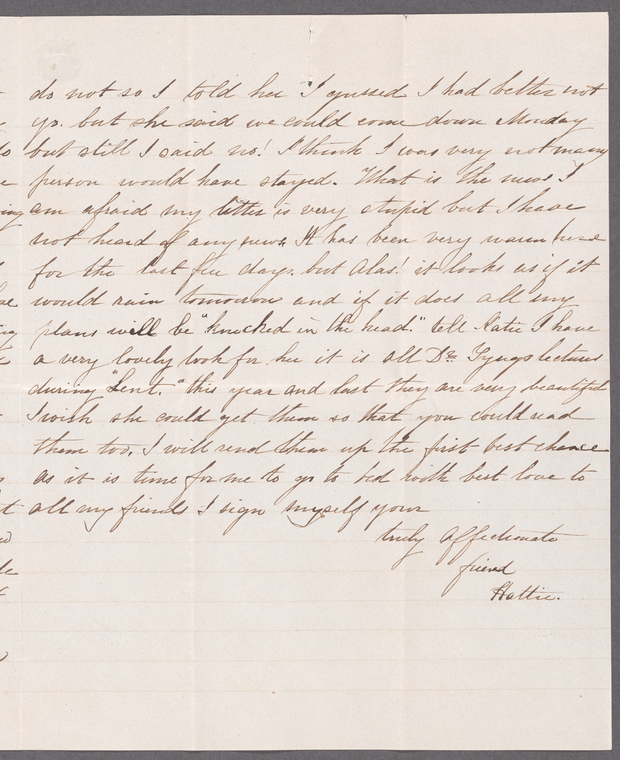 do not so I told her I guessed I had better not
go. but she said we could come down Monday
but still I said no! I think I was very not many
person would have stayed. What is the news I
am afraid my letter is very stupid but I have
not heard of any news. It has been very warm here
for the last few days. but Alas! it looks as if it
would rain tomorrow and if it does all my
plans will be "knocked in the head." tell Katie I have
a very lovely book for her it is all Dr. Tyngs lectures
during "Lent." this year and last they are very beautiful
I wish she could get them so that you could read
them too. I will send them up the first best chance
as it is time for me to go to bed with best love to
all my friends I sign myself your
truly affectionate
friend
Hattie.